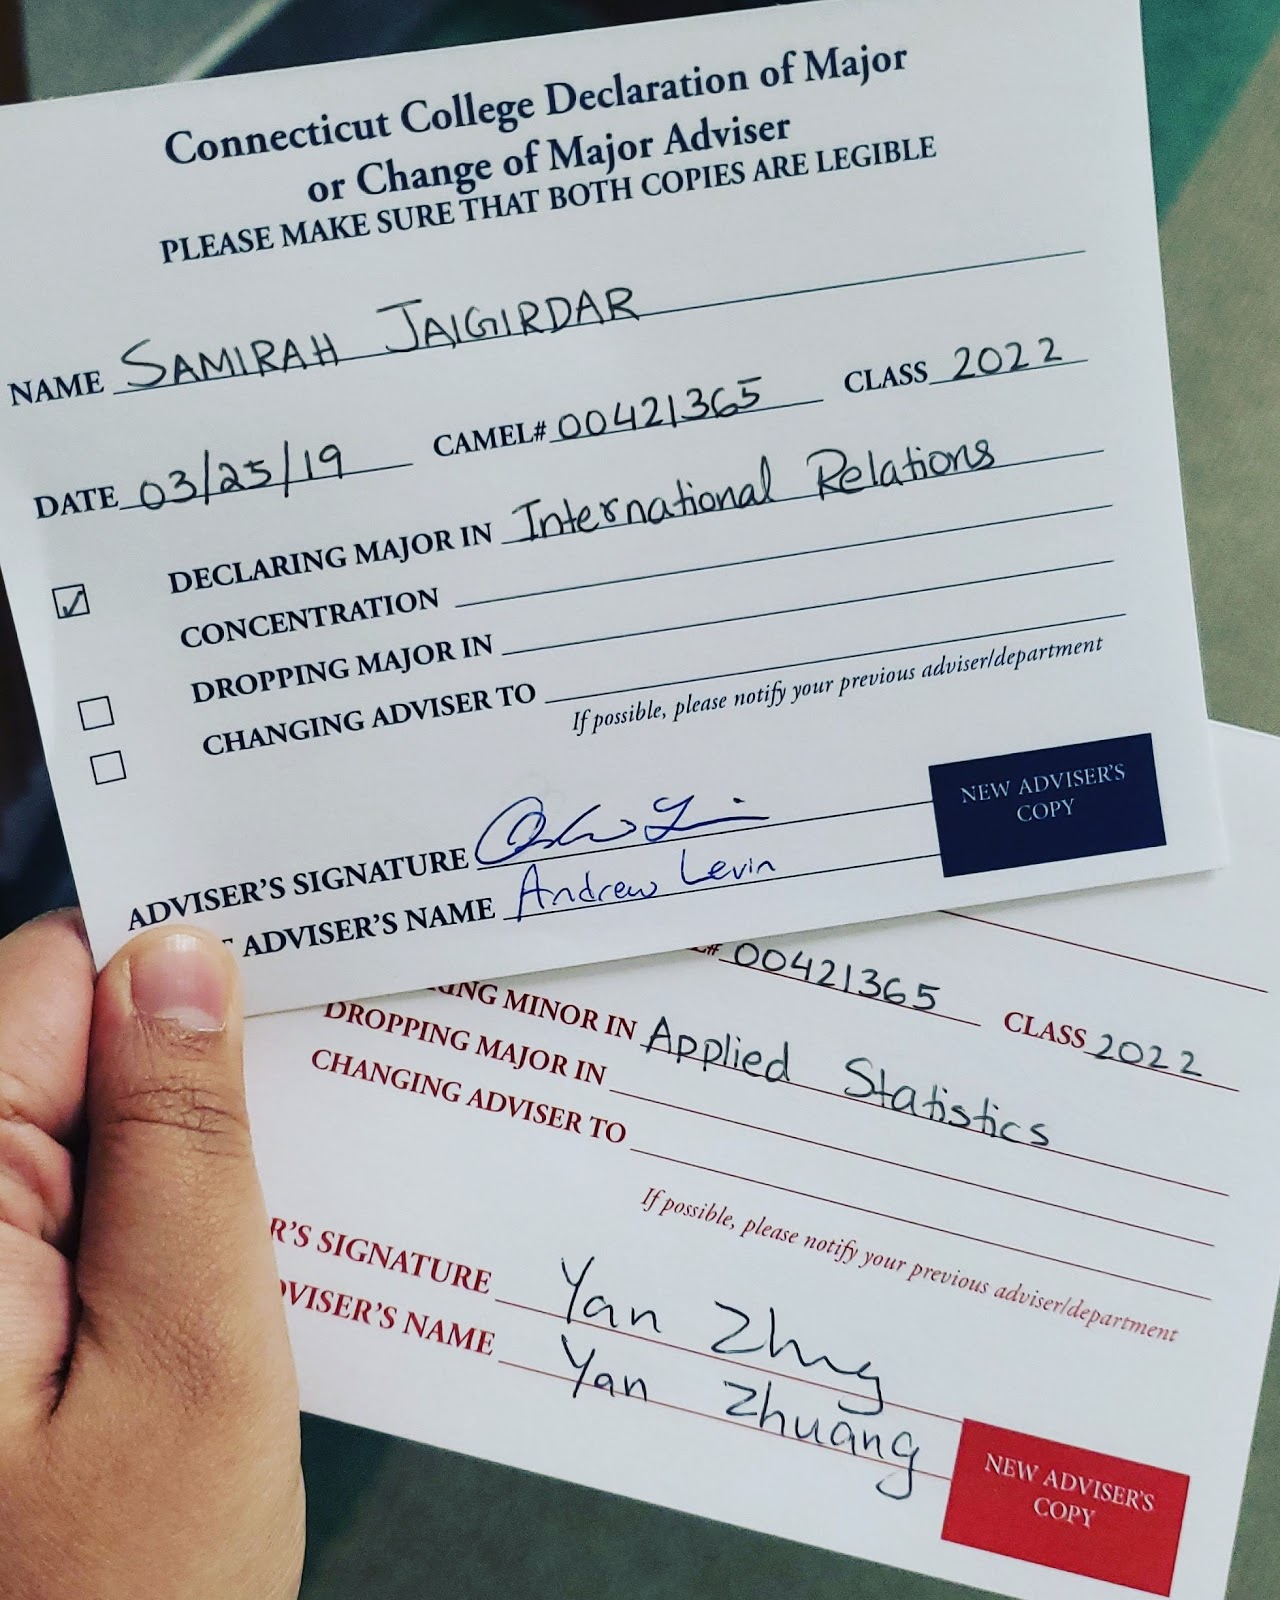 Connecticut College Declaration of Major
or Change of Major Adviser
PLEASE MAKE SURE THAT BOTH COPIES ARE LEGIBLE
NAME SAMIRAH JAIGIRDAR
DATE 03/25/19 CAMEL# 00421365 CLASS 2022
DECLARING MAJOR IN International Relations
CONCENTRATION
DROPPING MAJOR IN
CHANGING ADVISER TO
If possible, please notify your previous adviser/department
ADVISER'S SIGNATURE
ADVISER'S NAME Andrew Levin
NEW ADVISER'S
COPY
L# 00421365 CLASS 2022
ING MINOR IN Applied Statistics
DROPPING MAJOR IN
CHANGING ADVISER TO
If possible, please notify your previous adviser/department
R'S SIGNATURE Yan
DVISER'S NAME Yan Zhuang
NEW ADVISER'S
COPY